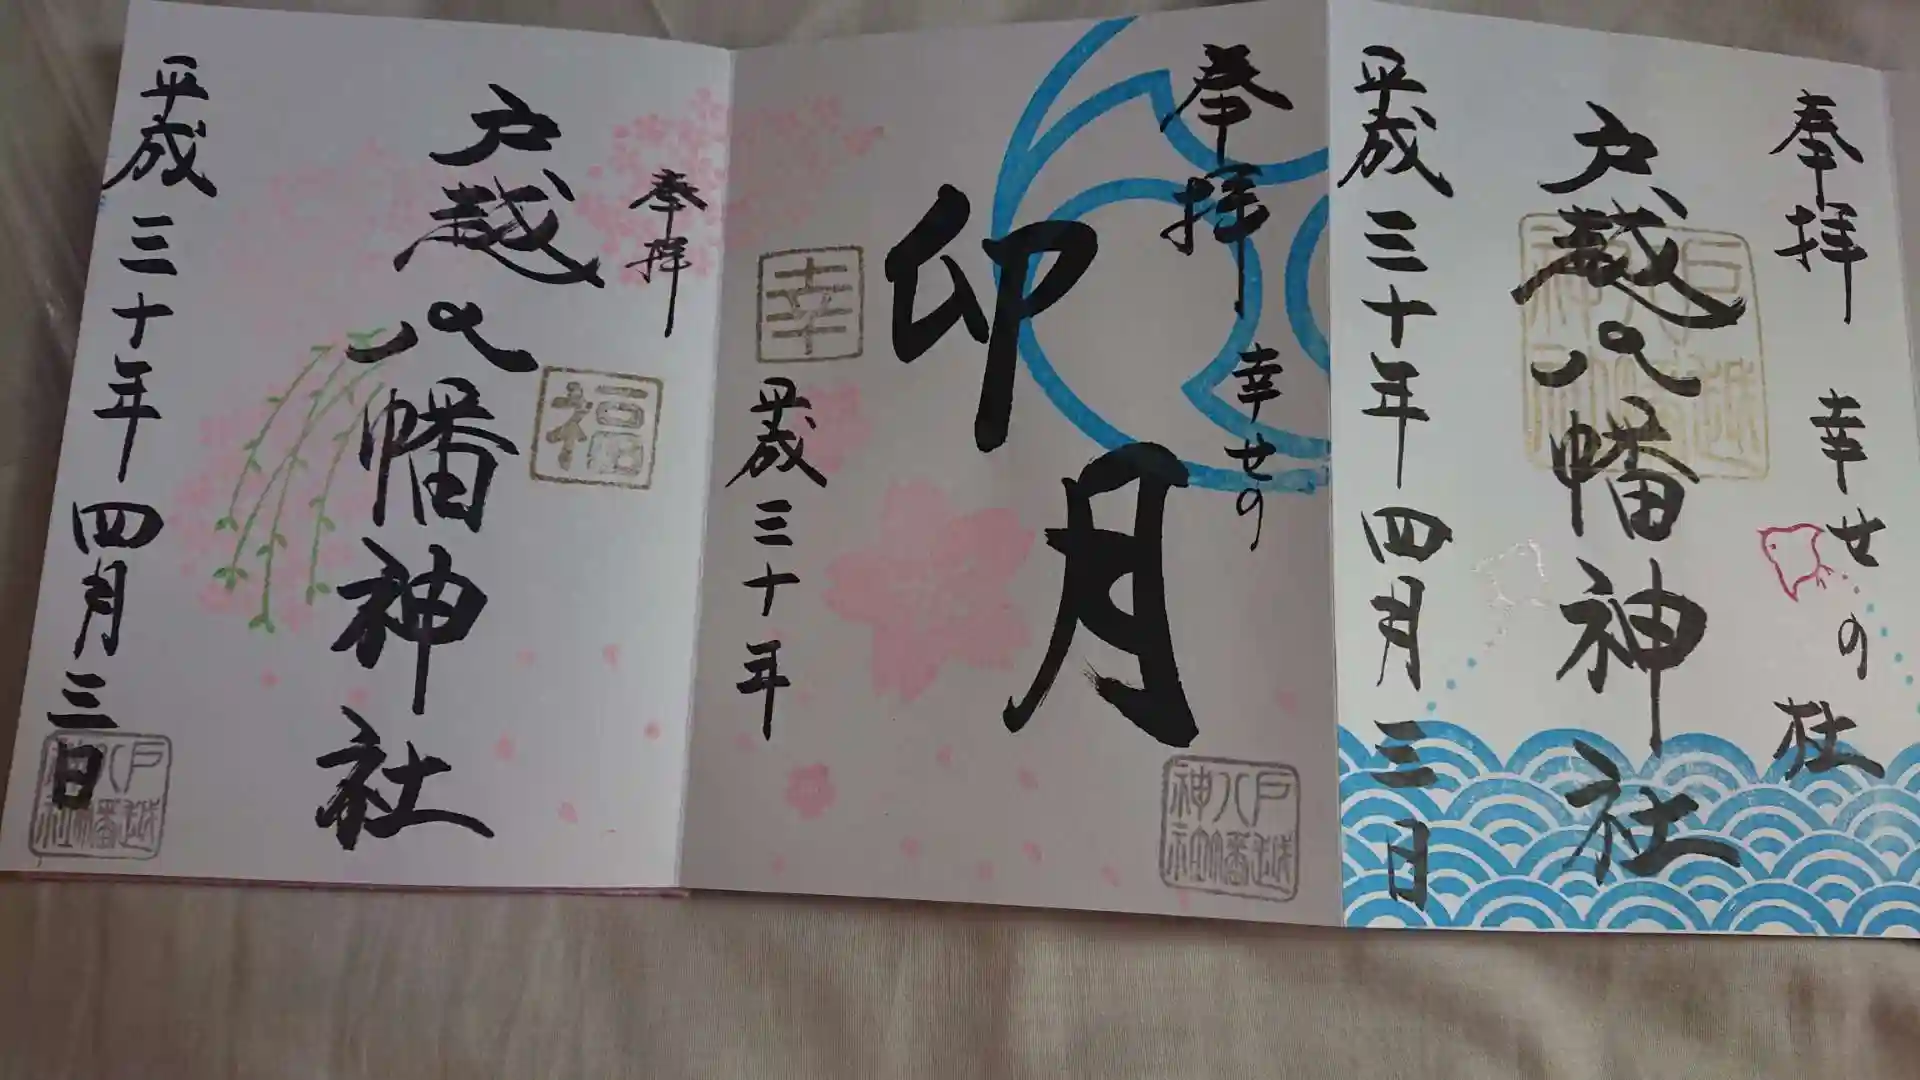 奉拝
幸せの社
戸越八幡神社
戸越八幡神社
平成三十年四月三日
奉拝
幸せの
卯月
幸
平成三十年
戸越八幡神社
奉拝
福
戸越八幡神社
平成三十年四月三日
戸越八幡神社